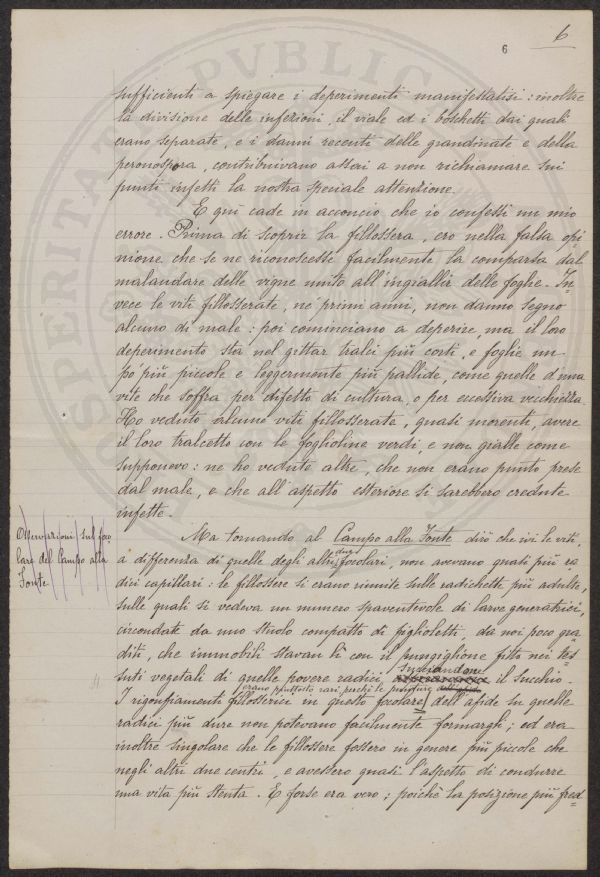 6
6
sufficienti a spiegare i deperimenti manifestatisi: inoltre
la divisione delle infezioni, il viale ed i boschetti dai quali
erano separate, e i danni recenti delle grandinate e della
peronospora, contribuivano assai a non richiamare sui
punti infetti la nostra speciale attenzione.
E qui cade in acconcio che io confessi un mio
errore. Prima di scoprir la fillossera, ero nella falsa opi=
nione che se ne riconoscesse facilmente la comparsa dal
malandare delle vigne unito all'ingiallir delle foglie. In=
vece le viti fillosserate, ne' primi anni, non danno segno
alcuno di male: poi cominciano a deperire, ma il loro
deperimento sta nel gittar tralci più corti, e foglie un
po' più piccole e leggermente più pallide, come quelle d'una
vite che soffra per difetto di cultura, o per eccessiva vecchiezza.
Ho veduto alcune viti fillosserate, quasi morenti, avere
il loro tralcetto con le foglioline verdi, e non gialle come
supponevo: ne ho vedute altre, che non erano punto prese
dal male, e che all'aspetto esteriore si sarebbero credute
infette.
Osservazioni sul foco
lare del Campo alla
Fonte
Ma tornando al Campo alla Fonte dirò che ivi le viti,
a differenza di quelle degli altri due focolari, non avevano quasi più ra
dici capillari: le fillossere si erano riunite sulle radichette più adulte,
sulle quali si vedeva un numero spaventevole di larve generatrici,
circondate da uno stuolo compatto di figlioletti, da noi poco gra
diti, che immobili stavan lì con il pungiglione fitto nei tes
suti vegetali di quelle povere radici succiandone il succhio.
I rigonfiamenti fillosserici in questo focolare erano piuttosto rari perchè le punture dell'afide su quelle
radici più dure non potevano facilmente formarghi; ed era
inoltre singolare che le fillossere fossero in genere più piccole che
negli altri due centri, e avessero quasi l'aspetto di condurre
una vita più stenta. E forse era vero; poichè la posizione più fred=
PVBLIC